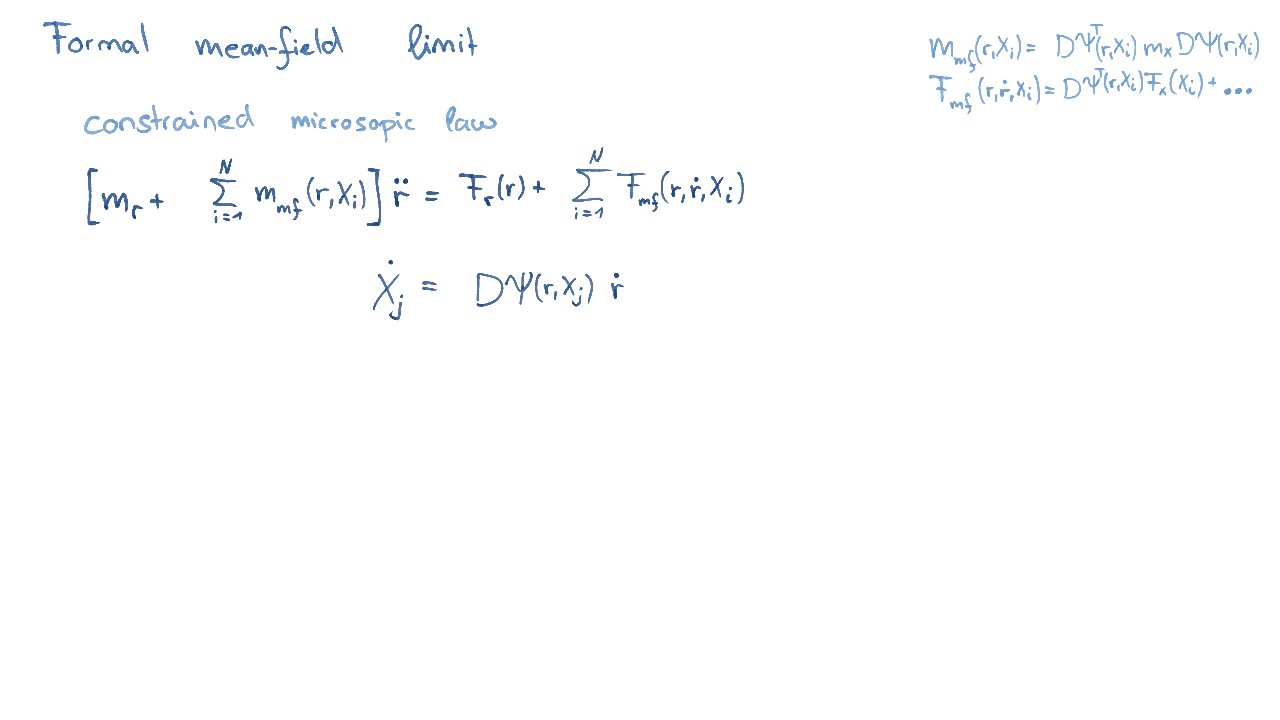 Formal mean-field limit
m_mf(r,X_i) = DΨ^T(r,X_i) m_x DΨ(r,X_i)
F_mf(r,ṙ,X_i) = DΨ^T(r,X_i) F_x(X_i) + ...
constrained microsopic law
[m_r + ∑_{i=1}^N m_mf(r,X_i)] r̈ = F_r(r) + ∑_{i=1}^N F_mf(r,ṙ,X_i)
Ẋ_j = DΨ(r,X_j) ṙ